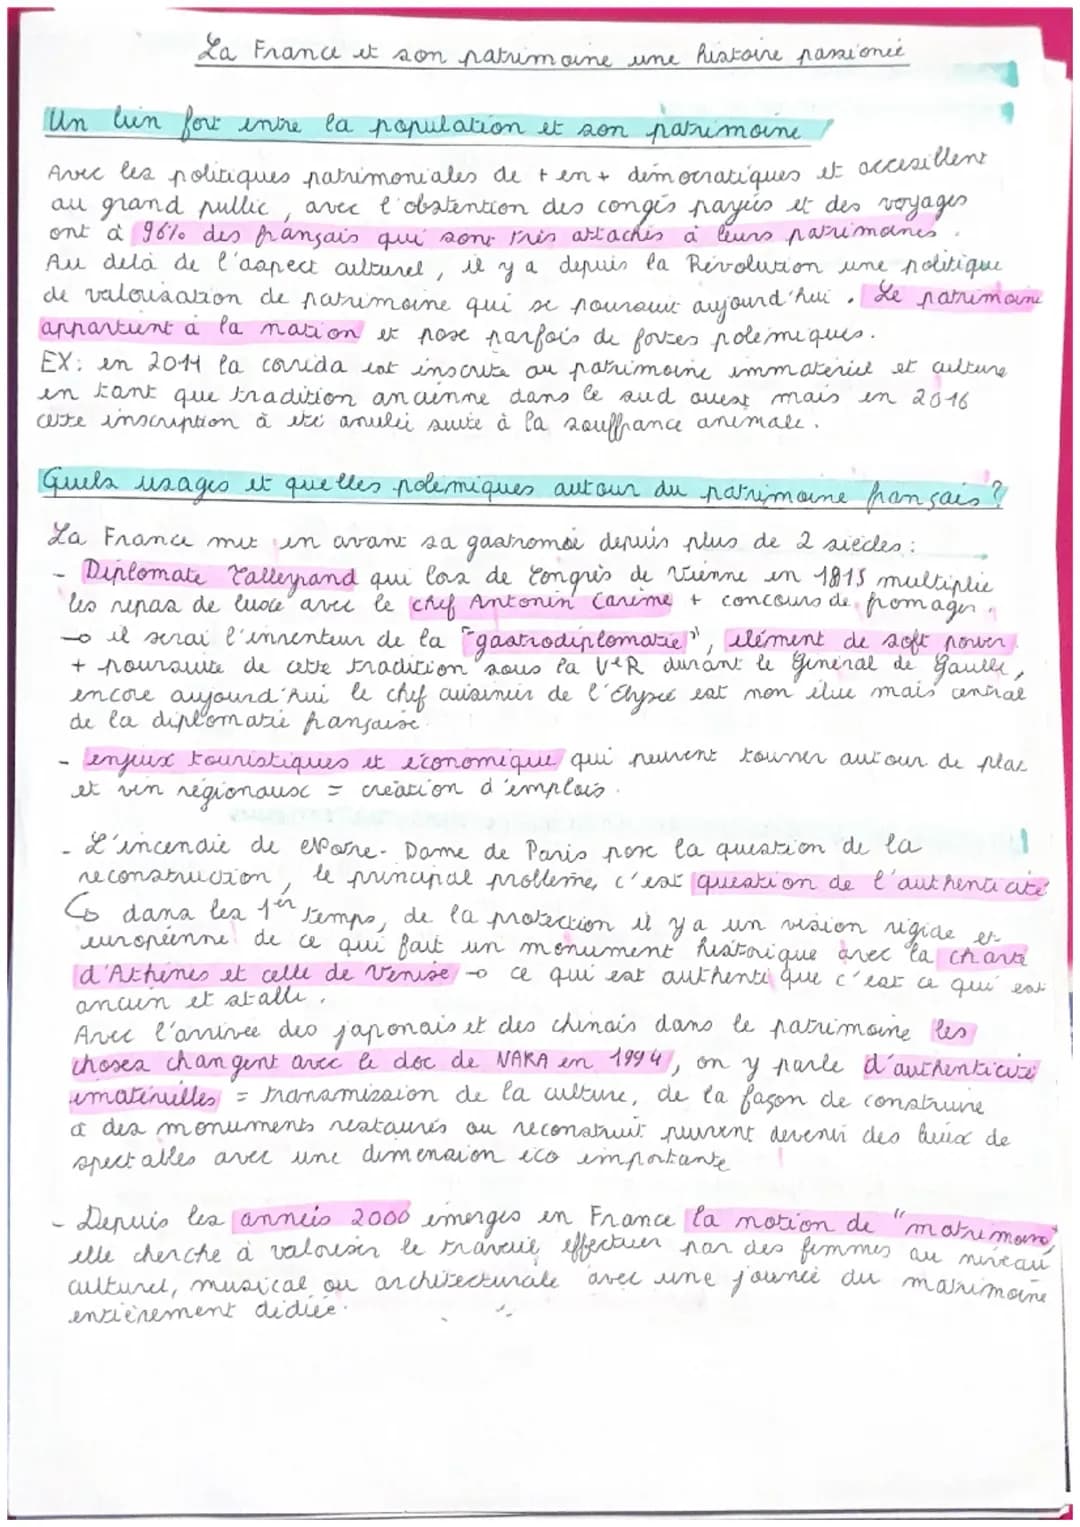 La France et son patrimoine une histoire passionée
Un lien fort entre la population et son patrimoine
Avec les politiques patrimoniales de + en + démocratiques et accesillent
au grand pullic, avec l'obstention des congés payés et des voyages
ont à 96% des français qui sont très attachés à leurs patrimoines.
Au delà de l'aspect culturel, il y a depuis la Révolution une politique
de valorisation de patrimoine qui se poursuit aujourd'hui. Le patrimoine
appartient à la nation et pose parfois de fortes polémiques.
EX: en 2011 la corrida est inscrite au patrimoine immatériel et culture
en tant que tradition ancienne dans le sud ouest mais en 2016
cette inscription à été anulée suite à la souffrance animale.
Quels usages et quelles polémiques autour du patrimoine français?
La France met en avant sa gastromie depuis plus de 2 siècles:
- Diplomate Talleyrand qui lors de Congrès de Vienne en 1815 multiplie
les repas de luxe avec le chef Antonin Carème + concours de fromages.
→ il serai l'inventeur de la "gastrodiplomatie", élément de soft power
+ poursuite de cette tradition sous la VeR durant le Général de Gaulle,
encore aujourd'hui le chef cuisinier de l'Elysée est non élue mais central
de la diplomatie française.
- enjeux touristiques et économique qui peuvent tourner autour de plac
et vin régionaux = création d'emplois.
- L'incendie de Notre-Dame de Paris pose la question de la
reconstruction, le principal probleme, c'est question de l'authenticité
↳ dans les 1er temps, de la protection il y a un vision rigide et
européenne de ce qui fait un monument historique avec la charte
d'Athènes et celle de Venise → ce qui est authentique c'est ce qui est
ancien et stalle.
Avec l'arrivée des japonais et des chinois dans le patrimoine les
choses changent avec le doc de NARA en 1994, on y parle d'authenticité
imatérielles = transmission de la culture, de la façon de construire
à des monuments restaurés ou reconstruit peuvent devenir des lieux de
spectalles avec une dimension éco importante
- Depuis les années 2000 émerges en France la notion de "matrimoine"
elle cherche à valoriser le travail effectuer par des femmes au niveau
culturel, musical ou architecturale avec une journée du matrimoine
entièrement dédiée.